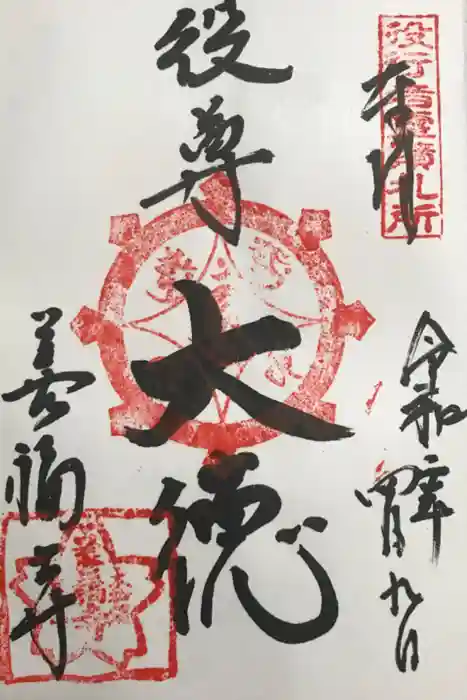 役行者霊蹟札所
奉拝
令和二年
四月九日
役尊
大徳
善福寺